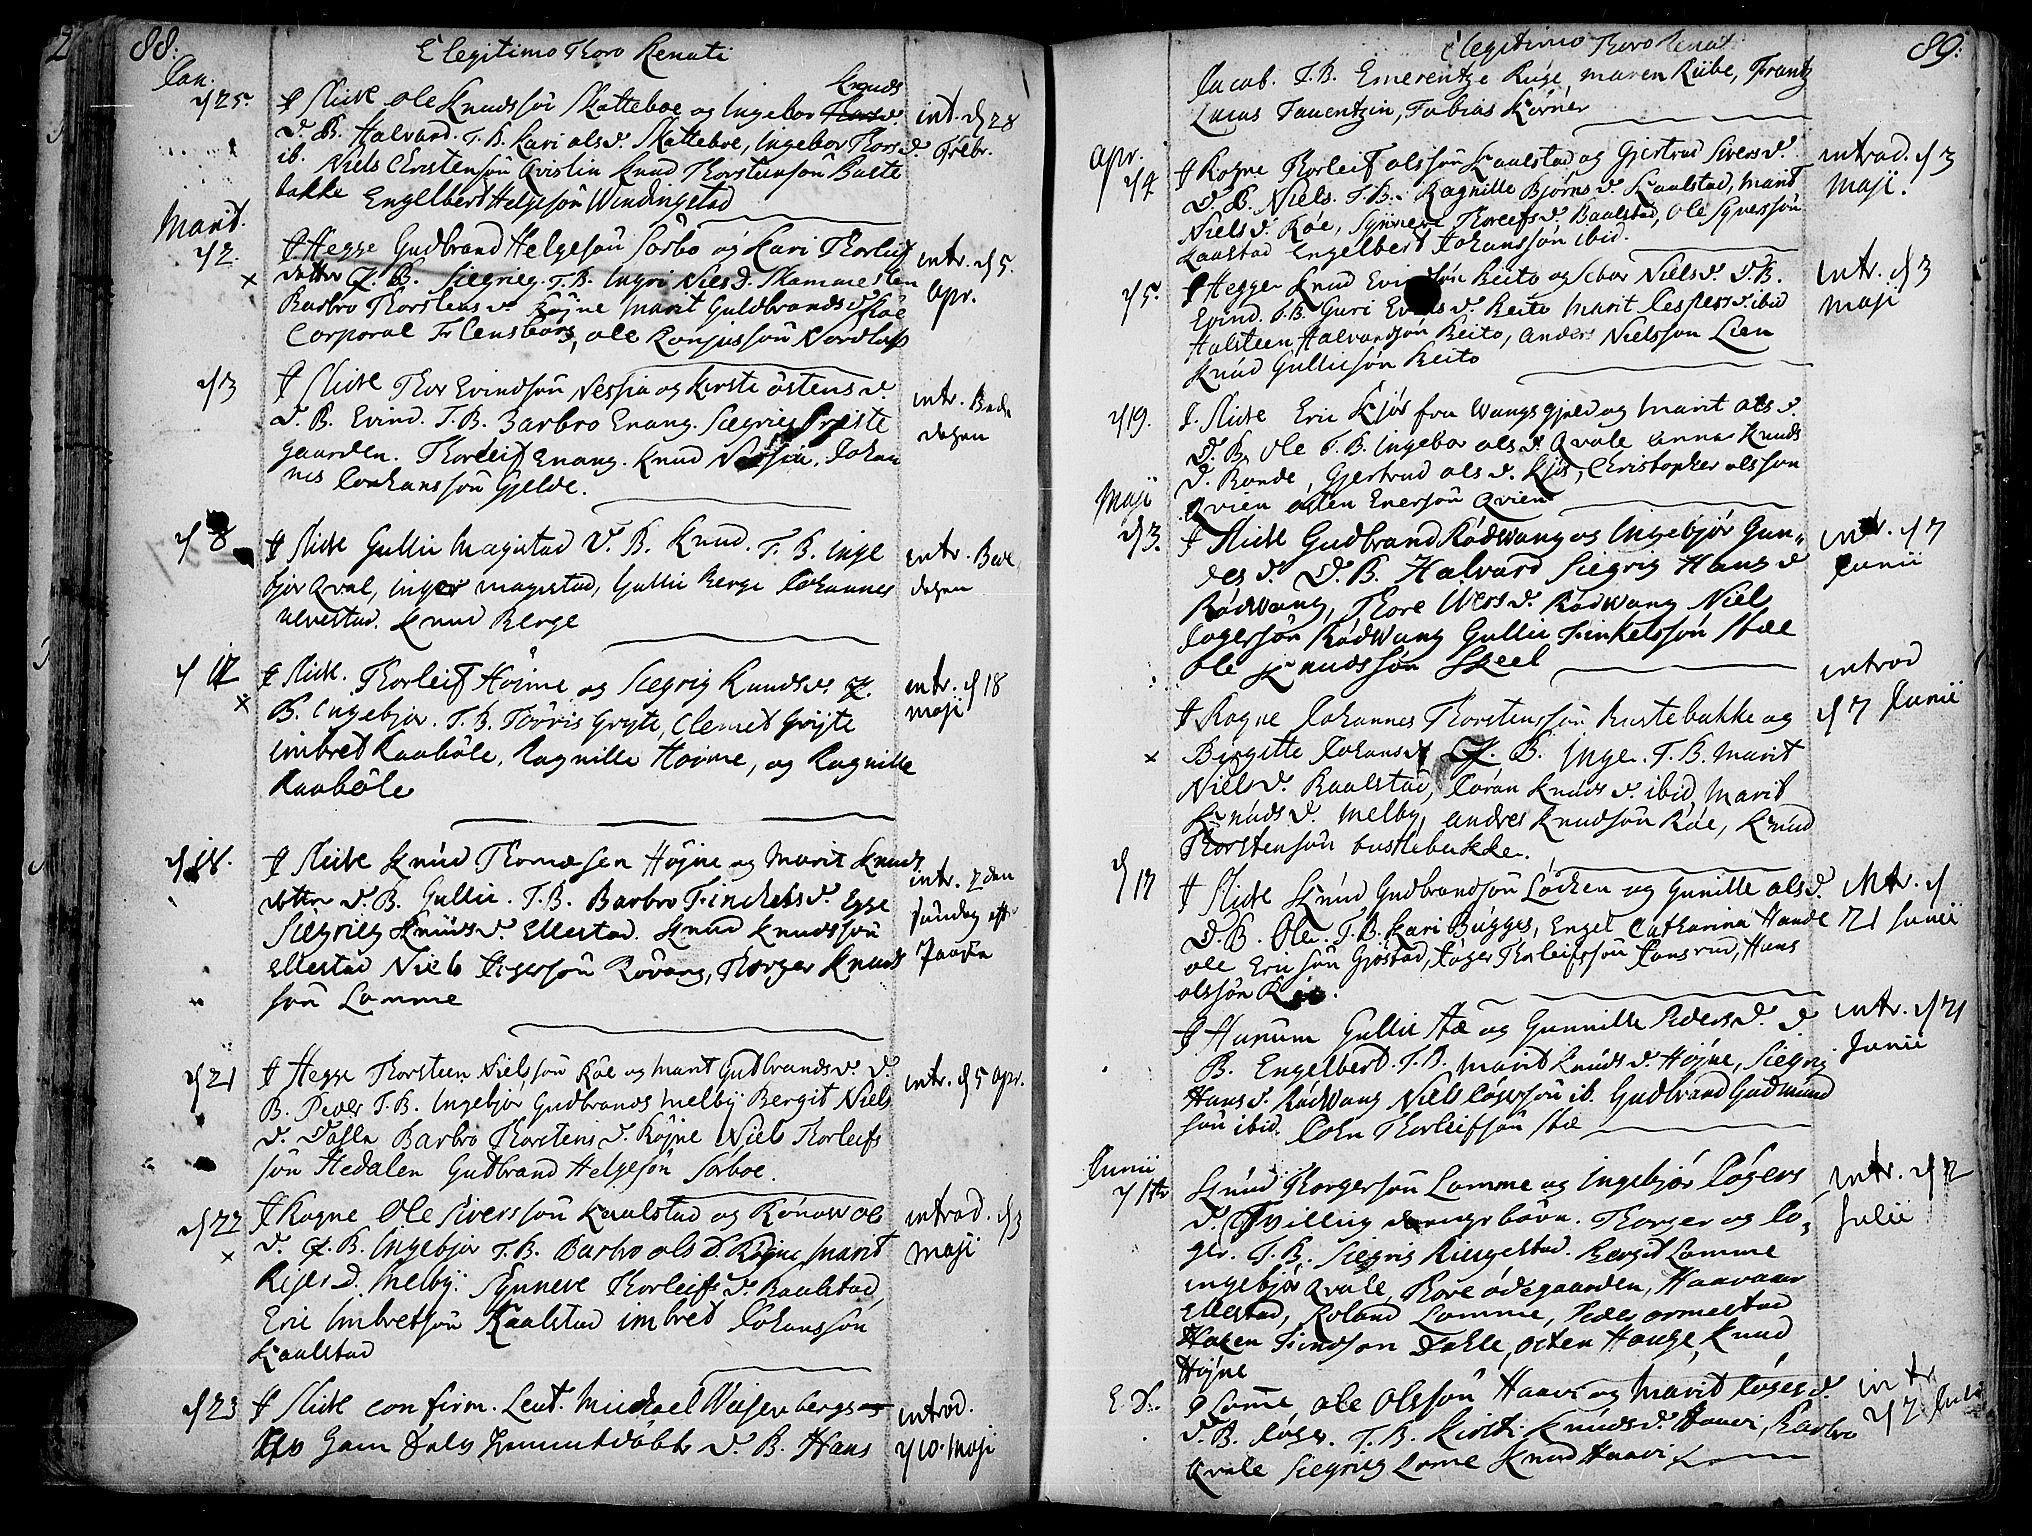 88.
E legitimo Thoro Renati
Jan.
d 25. I Slidre Ole Knudssøn Skattebøe og Ingebor Knuds
D. B. Halvard. T. B. Kari olsd. Skatteboe, Ingebor Thorsd.
ib. Niels Christensøn Qvislin Knud Thorsteinsøn
bakke Engelbert Helgesøn Windingstad
int. d 28
Febr.
Marit.
d 2. I Hegge Gudbrand Helgesøn Sørbo og Kari Thorleif
datter B. Siegrieg. T. B. Ingri Niels d. Skammesten
Barbro Thorstens d. Røgne Marit Guldbrands d. Røe
Corporal Flensborg, ole Ronjussøn Nordtup
intr. d 5.
Apr.
d 3 I Slidre Thor Evindssøn Nessia og Kirsti østens d.
D. B. Evind. T. B. Barbro Enang. Siegrieg Preste
gaarden. Thorleif Enang. Knud Nessia. Johan
nes Johanssøn Gjelde.
intr. Bede
dagen
d 8 I Slidre Gullie Magistad D. B. Knud. T. B. Inge
bjør Qval, inger magistad, Gullie Berge Johannes
ulvestad. Knud Berge
intr. Bede
dagen
d 12 I Slidre. Thorleif Høime og Siegrig Knudsd.
B. Ingebjør. T. B. Torris Gryte, Clemet Gryte
imbret Raabøle, Ragnille Høime, og Ragnille
Raabøle
intr. d 18
maji
d 18. I Slidre Knud Thomæsen Højne og Marit Knuds
datter D. B. Gullie. T. B. Barbro Finckels d. Egge
Siegrieg Knuds d. Ellestad. Knud Knudssøn
Ellestad Niels Iogersøn Rovang, Thorger Knud
søn Lomme
intr. 2 den
Sundag eft.
Paaske
d 21 I Hegge Thorsten Nielssøn Røe og Marit Gudbrands d. D.
B. Peder T. B. Ingebjør Gudbrands Melby Bergit Niels
d. Dahle Barbro Thorstens d. Røgne Niels Thorleifs
søn Hedalen Gudbrand Helgesøn Sørboe.
intr. d 5 apr.
d 22 I Rogne Ole Siverssøn Kaalstad og Rønow ols
d. B. Ingebjør T. B. Barbro ols d. Røgne, Marit
d. Melby. Synneve Thorleifs d. Kaalstad,
Eric Imbretsøn Kaalstad imbret Johanssøn
Kaalstad
introd. d 3
maji
d 23 I Slidre confirm. Leut. Michael Weisenbergs
hiem døbt D. B. Hans
introd.
d 10 Maji
89.
E legitimo Thoro Renati
Jacob. T. B. Emerentze Rüge, maren Riibe, Frantz
Lucas Tauentzin, Tobias Körner
Apr.
d 4 I Rogne Thorleif olssøn Kaalstad og Gjertrud Sivers d.
D. B. Niels. T. B. Ragnille Bjørns d. Kaalstad, Marit
Niels d. Røe, Synneve Thorleifs d. Baalstad, Ole Syverssøn
Kaalstad Engelbert Johanssøn ibid.
introd. d 3
Maji.
d 5. I Hegge Knud Evindssøn Beito og Sebor Niels d. D. B.
Evind. T. B. Guri Evinds d. Beito Marit Jespers d. ibid
Halsteen Halvorssøn Beito, Anders Nielssøn Lien
Knud Gulliessøn Beito
intr. d 3
maji
d 19. I Slidre Eric Kjös fra Wangs gjeld og Marit ols d.
D. B. Ole T. B. Ingebor ols d. Qvale anna Knuds
D. Rande, Gjertrud ols d. Kjös, Christopher olssøn
Qvien often Enersøn Qvien
Maji
d 3. I Slidre Gudbrand Rødwang og Ingebjør Gun-
des d. D. B. Halvard Siegrig Hans d
Rødwang, Thore Iversd. Rødwang Niels
Iogersøn Rødwang Gullie Finkelssøn Stæe
Ole Knudssøn Skeel
intr. d 7
Junii
I Rogne Johannes Thorstenssøn bustebakke og
Birgitte Johans d. B. Inger. T. B. Marit
Niels d. Kaalstad, Joran Knuds d. ibid, Marit
Knuds d. Melby, andres Knudsøn Røe, Knud
Thorstensøn bustebakke.
introd
d 7 Junii
d 17 I Slidre Knud Gudbrandsøn Løcken og Gunille ols d.
D. B. Ole. T. B. Kari Bugges, Engel Catharina Hande
ole Ericsøn Gjøstad, Joger Thorleifssøn Jonsrud, Hans
olssøn
intr. d
21 Junii
I Hurum Gullie Stæ og Gunnille Peders d. D
B. Engelbert. T. B. Marit Knuds d. Højne, Siegrig
Hans d. Rødwang Niels Iogersøn ib. Gudbrand Gudmund
søn ibid. John Thorleifsøn Stæ
intr. d 21
Junii
Junii
Knud Thorgersøn Lomme og Ingebjør Jøgers
d. Tvilling drenge børn. Thorger og Jo-
ger. T. B. Siegris Ringestad. Bergit Lomme
ingebjør Qvale, Thore ødegaarden, Haavaar
Ellestad, Roland Lomme, Peder ormestad
Haken Findsøn Dahle, osten Hauge Knud
Højne
intr. d 12
Julii
E. D. I Lomme Ole Olssøn Haavi og Marit Jøgers d.
D. B. Jøger. T. B. Kirsti Knuds d. Haavi, Barbro
Qvale Siegrieg Lome Knud Haavi
intr
d 2 Julii